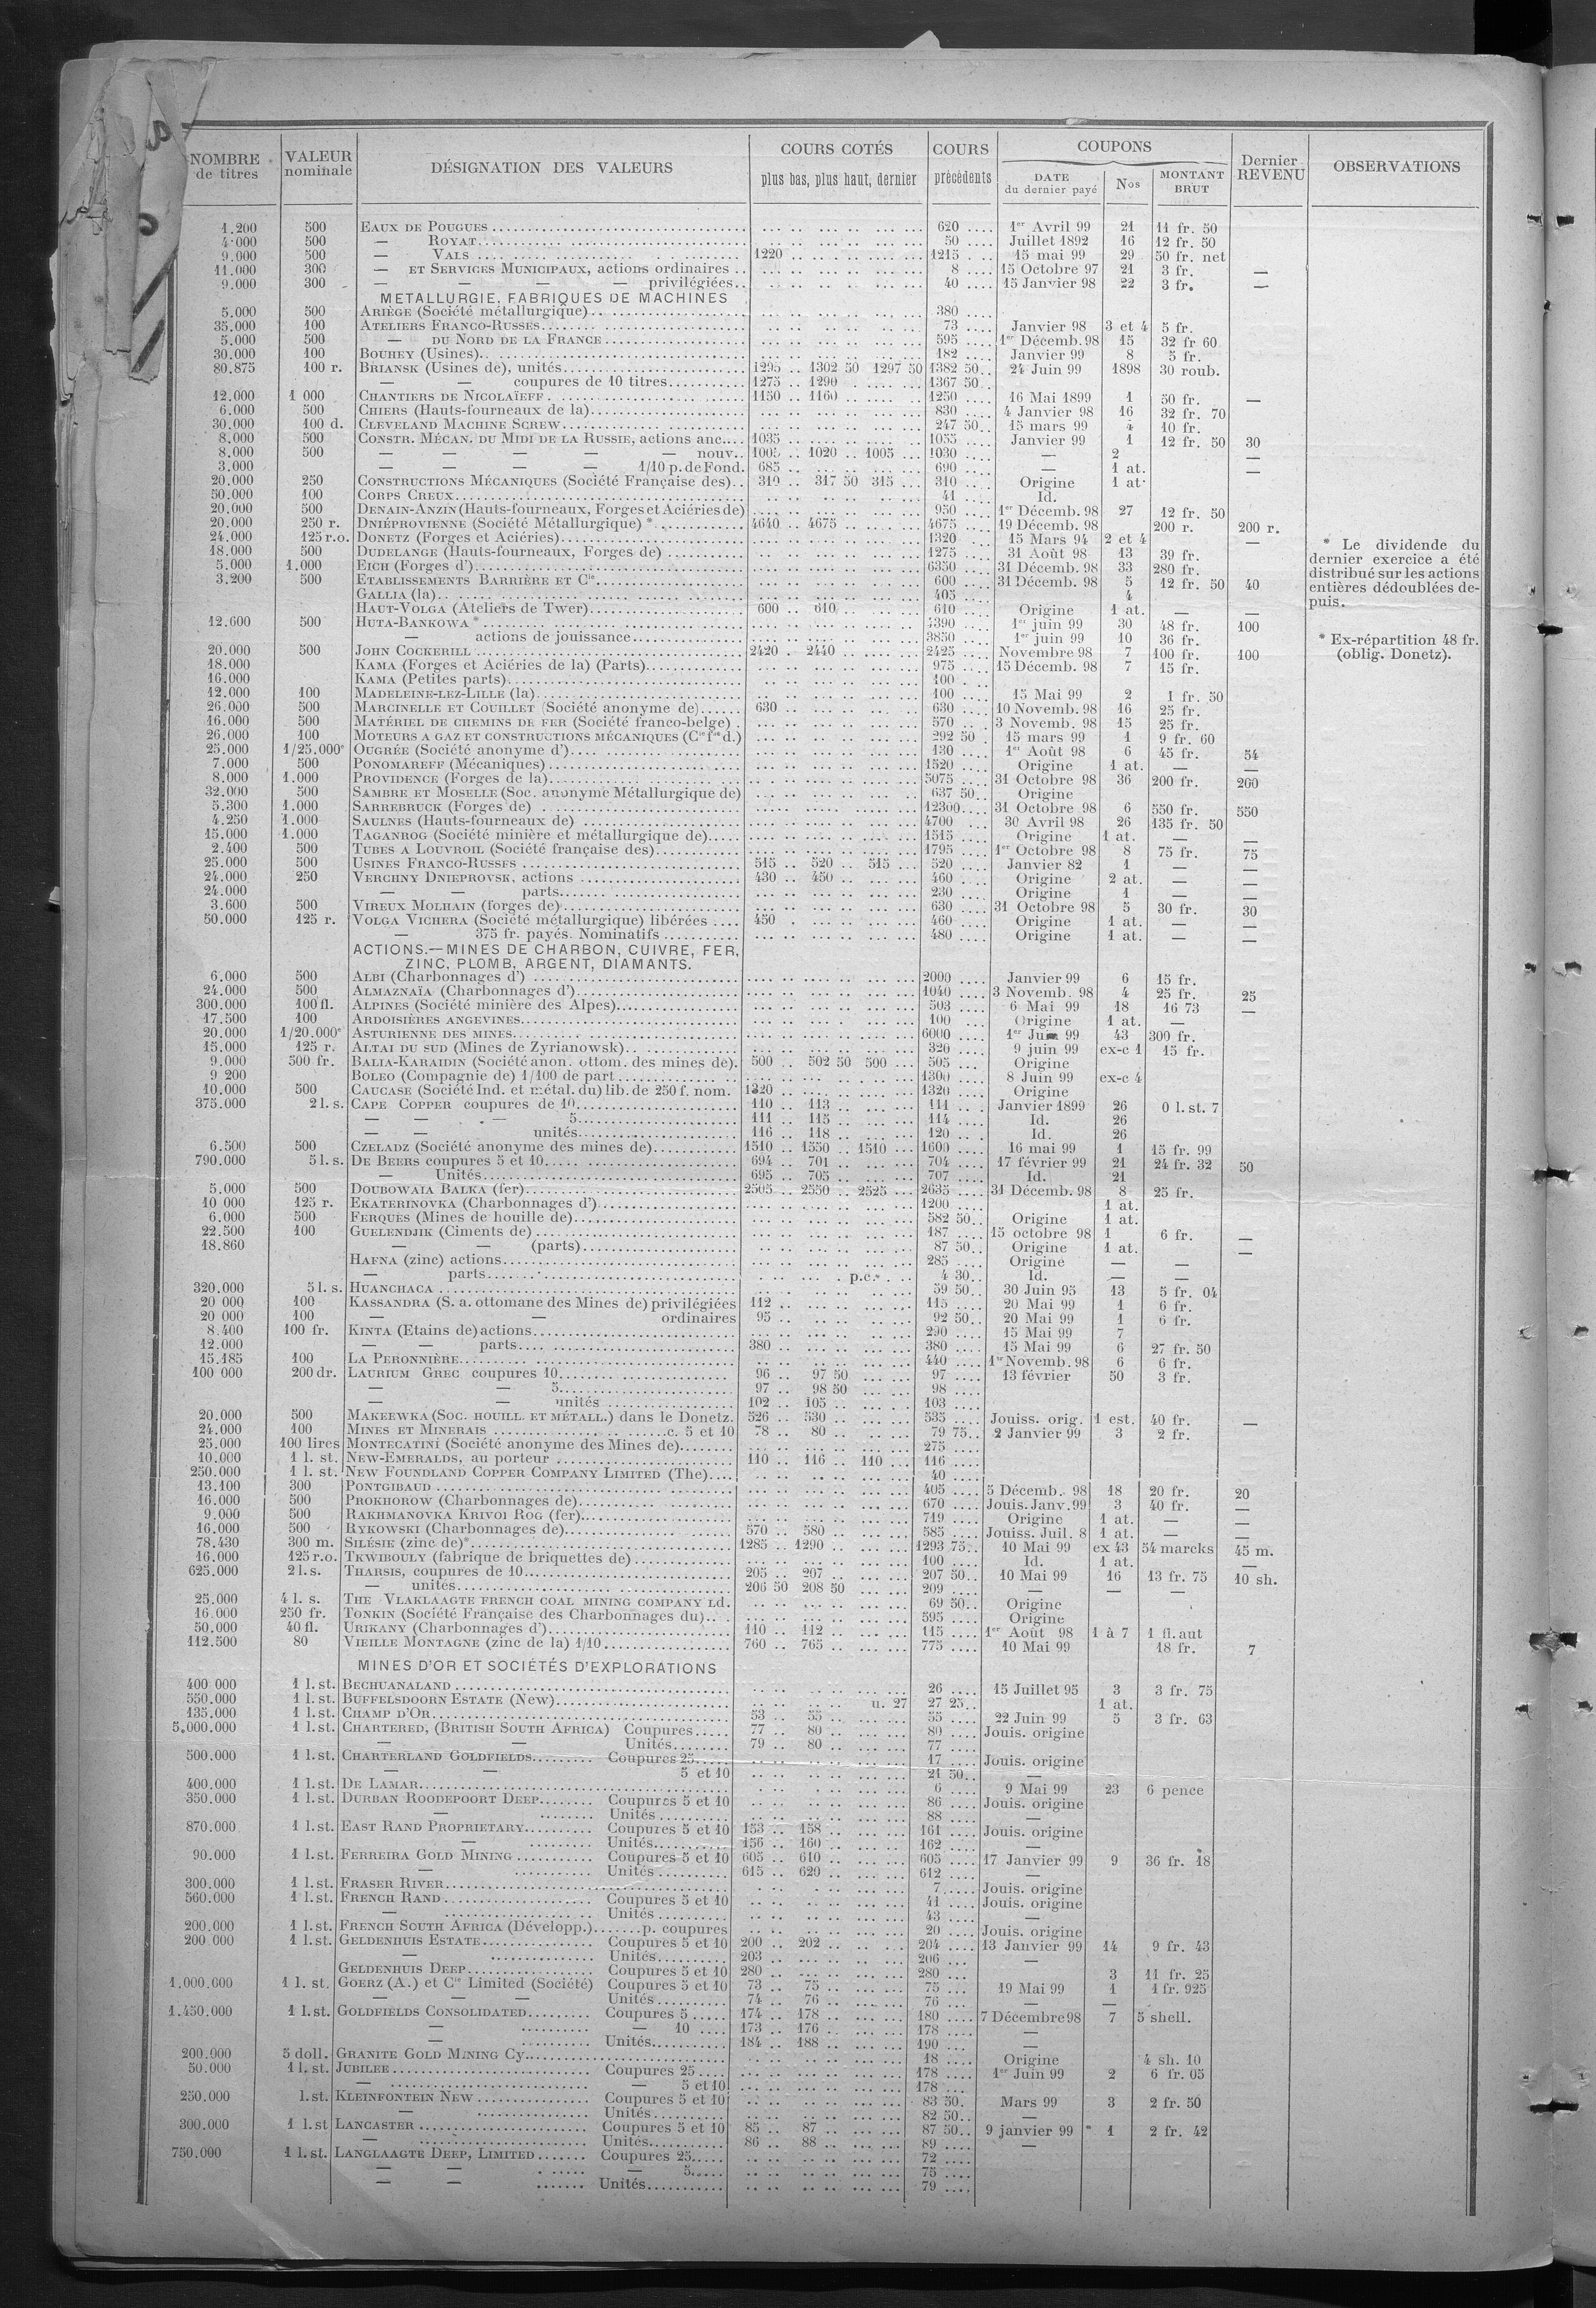 NOMBRE de titres | VALEUR nominale | DÉSIGNATION DES VALEURS | COURS COTÉS plus bas, plus haut, dernier | COURS précédents | COUPONS DATE du dernier payé | Nos | MONTANT BRUT | Dernier REVENU | OBSERVATIONS
1.200 500 EAUX DE POUGUES 620 1er Avril 99 21 11 fr. 50
4.000 500 — ROYAT 50 Juillet 1892 16 12 fr. 50
9.000 500 — VALS 1220 1215 15 mai 99 29 50 fr. net
11.000 300 — ET SERVICES MUNICIPAUX, actions ordinaires 8 15 Octobre 97 21 3 fr. —
9.000 300 — — — — privilégiées 40 15 Janvier 98 22 3 fr. —
METALLURGIE, FABRIQUES DE MACHINES
5.000 500 ARIÈGE (Société métallurgique) 380
35.000 100 ATELIERS FRANCO-RUSSES 73 Janvier 98 3 et 4 5 fr.
5.000 500 — DU NORD DE LA FRANCE 595 1er Décemb. 98 15 32 fr 60
30.000 100 BOUHEY (Usines) 182 Janvier 99 8 5 fr.
80.875 100 r. BRIANSK (Usines de), unités 1295 1302 50 1297 50 1382 50 24 Juin 99 1898 30 roub.
— — coupures de 10 titres 1275 1290 1367 50
12.000 1 000 CHANTIERS DE NICOLAÏEFF 1150 1160 1250 16 Mai 1899 1 50 fr. —
6.000 500 CHIERS (Hauts-fourneaux de la) 830 4 Janvier 98 16 32 fr. 70
30.000 100 d. CLEVELAND MACHINE SCREW 247 50 15 mars 99 4 10 fr.
8.000 500 CONSTR. MÉCAN. DU MIDI DE LA RUSSIE, actions anc. 1035 1055 Janvier 99 1 12 fr. 50 30
8.000 500 — — — — — nouv. 1005 1020 1005 1030 — 2 —
3.000 — — — — 1/10 p. de Fond. 685 690 — 1 at. —
20.000 250 CONSTRUCTIONS MÉCANIQUES (Société Française des) 310 317 50 315 310 Origine 1 at.
50.000 100 CORPS CREUX 41 Id.
20.000 500 DENAIN-ANZIN (Hauts-fourneaux, Forges et Aciéries de) 950 1er Décemb. 98 27 12 fr. 50
20.000 250 r. DNIÉPROVIENNE (Société Métallurgique) * 4640 4675 4675 19 Décemb. 98 200 r. 200 r.
24.000 125 r.o. DONETZ (Forges et Aciéries) 1320 15 Mars 94 2 et 4 —
18.000 500 DUDELANGE (Hauts-fourneaux, Forges de) 1275 31 Août 98 13 39 fr.
5.000 1.000 EICH (Forges d') 6350 31 Décemb. 98 33 280 fr.
3.200 500 ETABLISSEMENTS BARRIÈRE ET Cie 600 31 Décemb. 98 5 12 fr. 50 40
GALLIA (la) 405 4
HAUT-VOLGA (Ateliers de Twer) 600 610 610 Origine 1 at. — —
12.600 500 HUTA-BANKOWA * 1er juin 99 30 48 fr. 100
— actions de jouissance 3850 1er juin 99 10 36 fr.
20.000 500 JOHN COCKERILL 2420 2440 2425 Novembre 98 7 100 fr. 100
18.000 KAMA (Forges et Aciéries de la) (Parts) 975 15 Décemb. 98 7 15 fr.
16.000 KAMA (Petites parts) 100
12.000 100 MADELEINE-LEZ-LILLE (la) 100 15 Mai 99 2 1 fr. 50
26.000 500 MARCINELLE ET COUILLET (Société anonyme de) 630 630 10 Novemb. 98 16 25 fr.
16.000 500 MATÉRIEL DE CHEMINS DE FER (Société franco-belge) 570 3 Novemb. 98 15 25 fr.
26.000 100 MOTEURS A GAZ ET CONSTRUCTIONS MÉCANIQUES (Cie fse d.) 292 50 15 mars 99 1 9 fr. 60
25.000 1/25.000e OUGRÉE (Société anonyme d') 130 1er Août 98 6 45 fr. 54
7.000 500 PONOMAREFF (Mécaniques) 1520 Origine 1 at. — —
8.000 1.000 PROVIDENCE (Forges de la) 5075 31 Octobre 98 36 200 fr. 200
32.000 500 SAMBRE ET MOSELLE (Soc. anonyme Métallurgique de) 637 50 Origine
5.300 1.000 SARREBRUCK (Forges de) 12300 31 Octobre 98 6 550 fr. 550
4.250 1.000 SAULNES (Hauts-fourneaux de) 4700 30 Avril 98 26 135 fr. 50
15.000 1.000 TAGANROG (Société minière et métallurgique de) 1515 Origine 1 at. — —
2.400 500 TUBES A LOUVROIL (Société française des) 1795 1er Octobre 98 8 75 fr. 75
25.000 500 USINES FRANCO-RUSSES 515 520 515 520 Janvier 82 1 — —
24.000 250 VERCHNY DNIEPROVSK, actions 430 450 460 Origine 2 at. — —
24.000 — — parts 230 Origine 1 — —
3.600 500 VIREUX MOLHAIN (forges de) 630 31 Octobre 98 5 30 fr. 30
50.000 125 r. VOLGA VICHERA (Société métallurgique) libérées 450 460 Origine 1 at. — —
— 375 fr. payés. Nominatifs 480 Origine 1 at. — —
* Le dividende du
dernier exercice a été
distribué sur les actions
entières dédoublées de-
puis.
* Ex-répartition 48 fr.
(oblig. Donetz).
ACTIONS.—MINES DE CHARBON, CUIVRE, FER,
ZINC, PLOMB, ARGENT, DIAMANTS.
6.000 500 ALBI (Charbonnages d') 2000 Janvier 99 6 15 fr.
24.000 500 ALMAZNAÏA (Charbonnages d') 1040 3 Novemb. 98 4 25 fr. 25
300.000 100 fl. ALPINES (Société minière des Alpes) 503 6 Mai 99 18 16 73 —
17.500 100 ARDOISIÈRES ANGEVINES 100 Origine 1 at. —
20.000 1/20.000e ASTURIENNE DES MINES 6000 1er 99 43 300 fr.
15.000 125 r. ALTAI DU SUD (Mines de Zyrianowsk) 320 9 juin 99 ex-c 1 15 fr.
9.000 500 fr. BALIA-KARAIDIN (Société anon. ottom. des mines de) 500 502 50 500 505 Origine
9 200 BOLEO (Compagnie de) 1/100 de part 1300 8 Juin 99 ex-c 4
10.000 500 CAUCASE (Société Ind. et métal. du) lib. de 250 f. nom. 1320 1320 Origine
375.000 2 l. s. CAPE COPPER coupures de 10 110 113 111 Janvier 1899 26 0 l. st. 7
— — — 5 111 115 114 Id. 26
— — unités 116 118 120 Id. 26
6.500 500 CZELADZ (Société anonyme des mines de) 1510 1550 1510 1600 16 mai 99 1 15 fr. 99
790.000 5 l. s. DE BEERS coupures 5 et 10 694 701 704 17 février 99 21 24 fr. 32 50
— Unités 695 705 707 Id. 21
5.000 500 DOUBOWAIA BALKA (fer) 2505 2550 2525 2635 31 Décemb. 98 8 25 fr.
10 000 125 r. EKATERINOVKA (Charbonnages d') 1200 1 at.
6.000 500 FERQUES (Mines de houille de) 582 50 Origine 1 at.
22.500 100 GUELENDJIK (Ciments de) 187 15 octobre 98 1 6 fr. —
18.860 — — (parts) 87 50 Origine 1 at. —
HAFNA (zinc) actions 285 Origine — —
— parts p.c. 4 30 Id. — —
320.000 5 l. s. HUANCHACA 59 50 30 Juin 95 13 5 fr. 04
20 000 100 KASSANDRA (S. a. ottomane des Mines de) privilégiées 112 115 20 Mai 99 1 6 fr.
20 000 100 — — ordinaires 95 92 50 20 Mai 99 1 6 fr.
8.400 100 fr. KINTA (Etains de) actions 290 15 Mai 99 7
12.000 — — parts 380 380 15 Mai 99 6 27 fr. 50
15.485 100 LA PERONNIÈRE 440 1er Novemb. 98 6 6 fr.
100 000 200 dr. LAURIUM GREC coupures 10 96 97 50 97 13 février 50 3 fr.
— — 5 97 98 50 98
— — unités 102 105 103
20.000 500 MAKEEWKA (SOC. HOUILL. ET MÉTALL.) dans le Donetz. 526 530 535 Jouiss. orig. 1 est. 40 fr. —
24.000 100 MINES ET MINERAIS c. 5 et 10 78 80 79 75 2 Janvier 99 3 2 fr.
25.000 100 lires MONTECATINI (Société anonyme des Mines de) 275
10.000 1 l. st. NEW-EMERALDS, au porteur 110 116 110 116
250.000 1 l. st. NEW FOUNDLAND COPPER COMPANY LIMITED (The) 40
13.100 300 PONTGIBAUD 405 5 Décemb. 98 18 20 fr. 20
16.000 500 PROKHOROW (Charbonnages de) 670 Jouis. Janv. 99 3 40 fr. —
9.000 500 RAKHMANOVKA KRIVOI ROG (fer) 719 Origine 1 at. — —
16.000 500 RYKOWSKI (Charbonnages de) 570 580 585 Jouiss. Juil. 8 1 at. — —
78.430 300 m. SILÉSIE (zinc de)* 1285 1290 1293 75 10 Mai 99 ex 43 54 marcks 45 m.
16.000 125 r.o. TKWIBOULY (fabrique de briquettes de) 100 Id. 1 at. —
625.000 2 l. s. THARSIS, coupures de 10 205 207 207 50 10 Mai 99 16 13 fr. 75 10 sh.
— unités 206 50 208 50 209 — — —
25.000 4 l. s. THE VLAKLAAGTE FRENCH COAL MINING COMPANY Ld. 69 50 Origine
16.000 250 fr. TONKIN (Société Française des Charbonnages du) 595 Origine
50.000 40 fl. URIKANY (Charbonnages d') 110 112 115 1er Août 98 1 à 7 1 fl. aut
112.500 80 VIEILLE MONTAGNE (zinc de la) 1/10 760 765 775 10 Mai 99 18 fr. 7
MINES D'OR ET SOCIÉTÉS D'EXPLORATIONS
400 000 1 l. st. BECHUANALAND 26 15 Juillet 95 3 3 fr. 75
550.000 1 l. st. BUFFELSDOORN ESTATE (New) u. 27 27 25 1 at.
135.000 1 l. st. CHAMP D'OR 53 55 55 22 Juin 99 5 3 fr. 63
5.000.000 1 l. st. CHARTERED, (BRITISH SOUTH AFRICA) Coupures 77 80 80 Jouis. origine
— — Unités 79 80 77
500.000 1 l. st. CHARTERLAND GOLDFIELDS Coupures 25 17 Jouis. origine
— — 5 et 10 21 50 —
400.000 1 l. st. DE LAMAR 6 9 Mai 99 23 6 pence
350.000 1 l. st. DURBAN ROODEPOORT DEEP Coupures 5 et 10 86 Jouis. origine
— Unités 88 —
870.000 1 l. st. EAST RAND PROPRIETARY Coupures 5 et 10 153 158 161 Jouis. origine
— Unités 156 160 162 —
90.000 1 l. st. FERREIRA GOLD MINING Coupures 5 et 10 605 610 605 17 Janvier 99 9 36 fr. 18
— Unités 615 620 612 —
300.000 1 l. st. FRASER RIVER 7 Jouis. origine
560.000 1 l. st. FRENCH RAND Coupures 5 et 10 41 Jouis. origine
— Unités 43 —
200.000 1 l. st. FRENCH SOUTH AFRICA (Développ.) p. coupures 20 Jouis. origine
200 000 1 l. st. GELDENHUIS ESTATE Coupures 5 et 10 200 202 204 13 Janvier 99 14 9 fr. 43
— Unités 203 206 —
GELDENHUIS DEEP Coupures 5 et 10 280 280 3 11 fr. 25
1.000.000 1 l. st. GOERZ (A.) et Cie Limited (Société) Coupures 5 et 10 73 75 75 19 Mai 99 1 1 fr. 925
— — — Unités 74 76 76 — —
1.450.000 1 l. st. GOLDFIELDS CONSOLIDATED Coupures 5 174 178 180 7 Décembre 98 7 5 shell.
— — 10 173 176 178 —
— Unités 184 188 190 —
200.000 5 doll. GRANITE GOLD MINING Cy 18 Origine 4 sh. 10
50.000 1 l. st. JUBILEE Coupures 25 178 1er Juin 99 2 6 fr. 05
— — 5 et 10 178
250.000 l. st. KLEINFONTEIN NEW Coupures 5 et 10 83 50 Mars 99 3 2 fr. 50
— Unités 82 50 —
300.000 1 l. st LANCASTER Coupures 5 et 10 85 87 87 50 9 janvier 99 1 2 fr. 42
— Unités 86 88 89 —
750.000 1 l. st. LANGLAAGTE DEEP, LIMITED Coupures 25 72
— — — 5 75
— — Unités 79